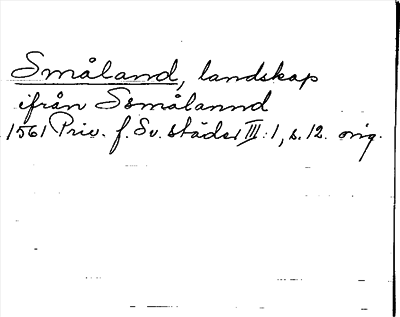 Småland, landskap
ifrån Ssmålannd
1561 Priv. f. Sv. städer III:1, s. 12. orig.